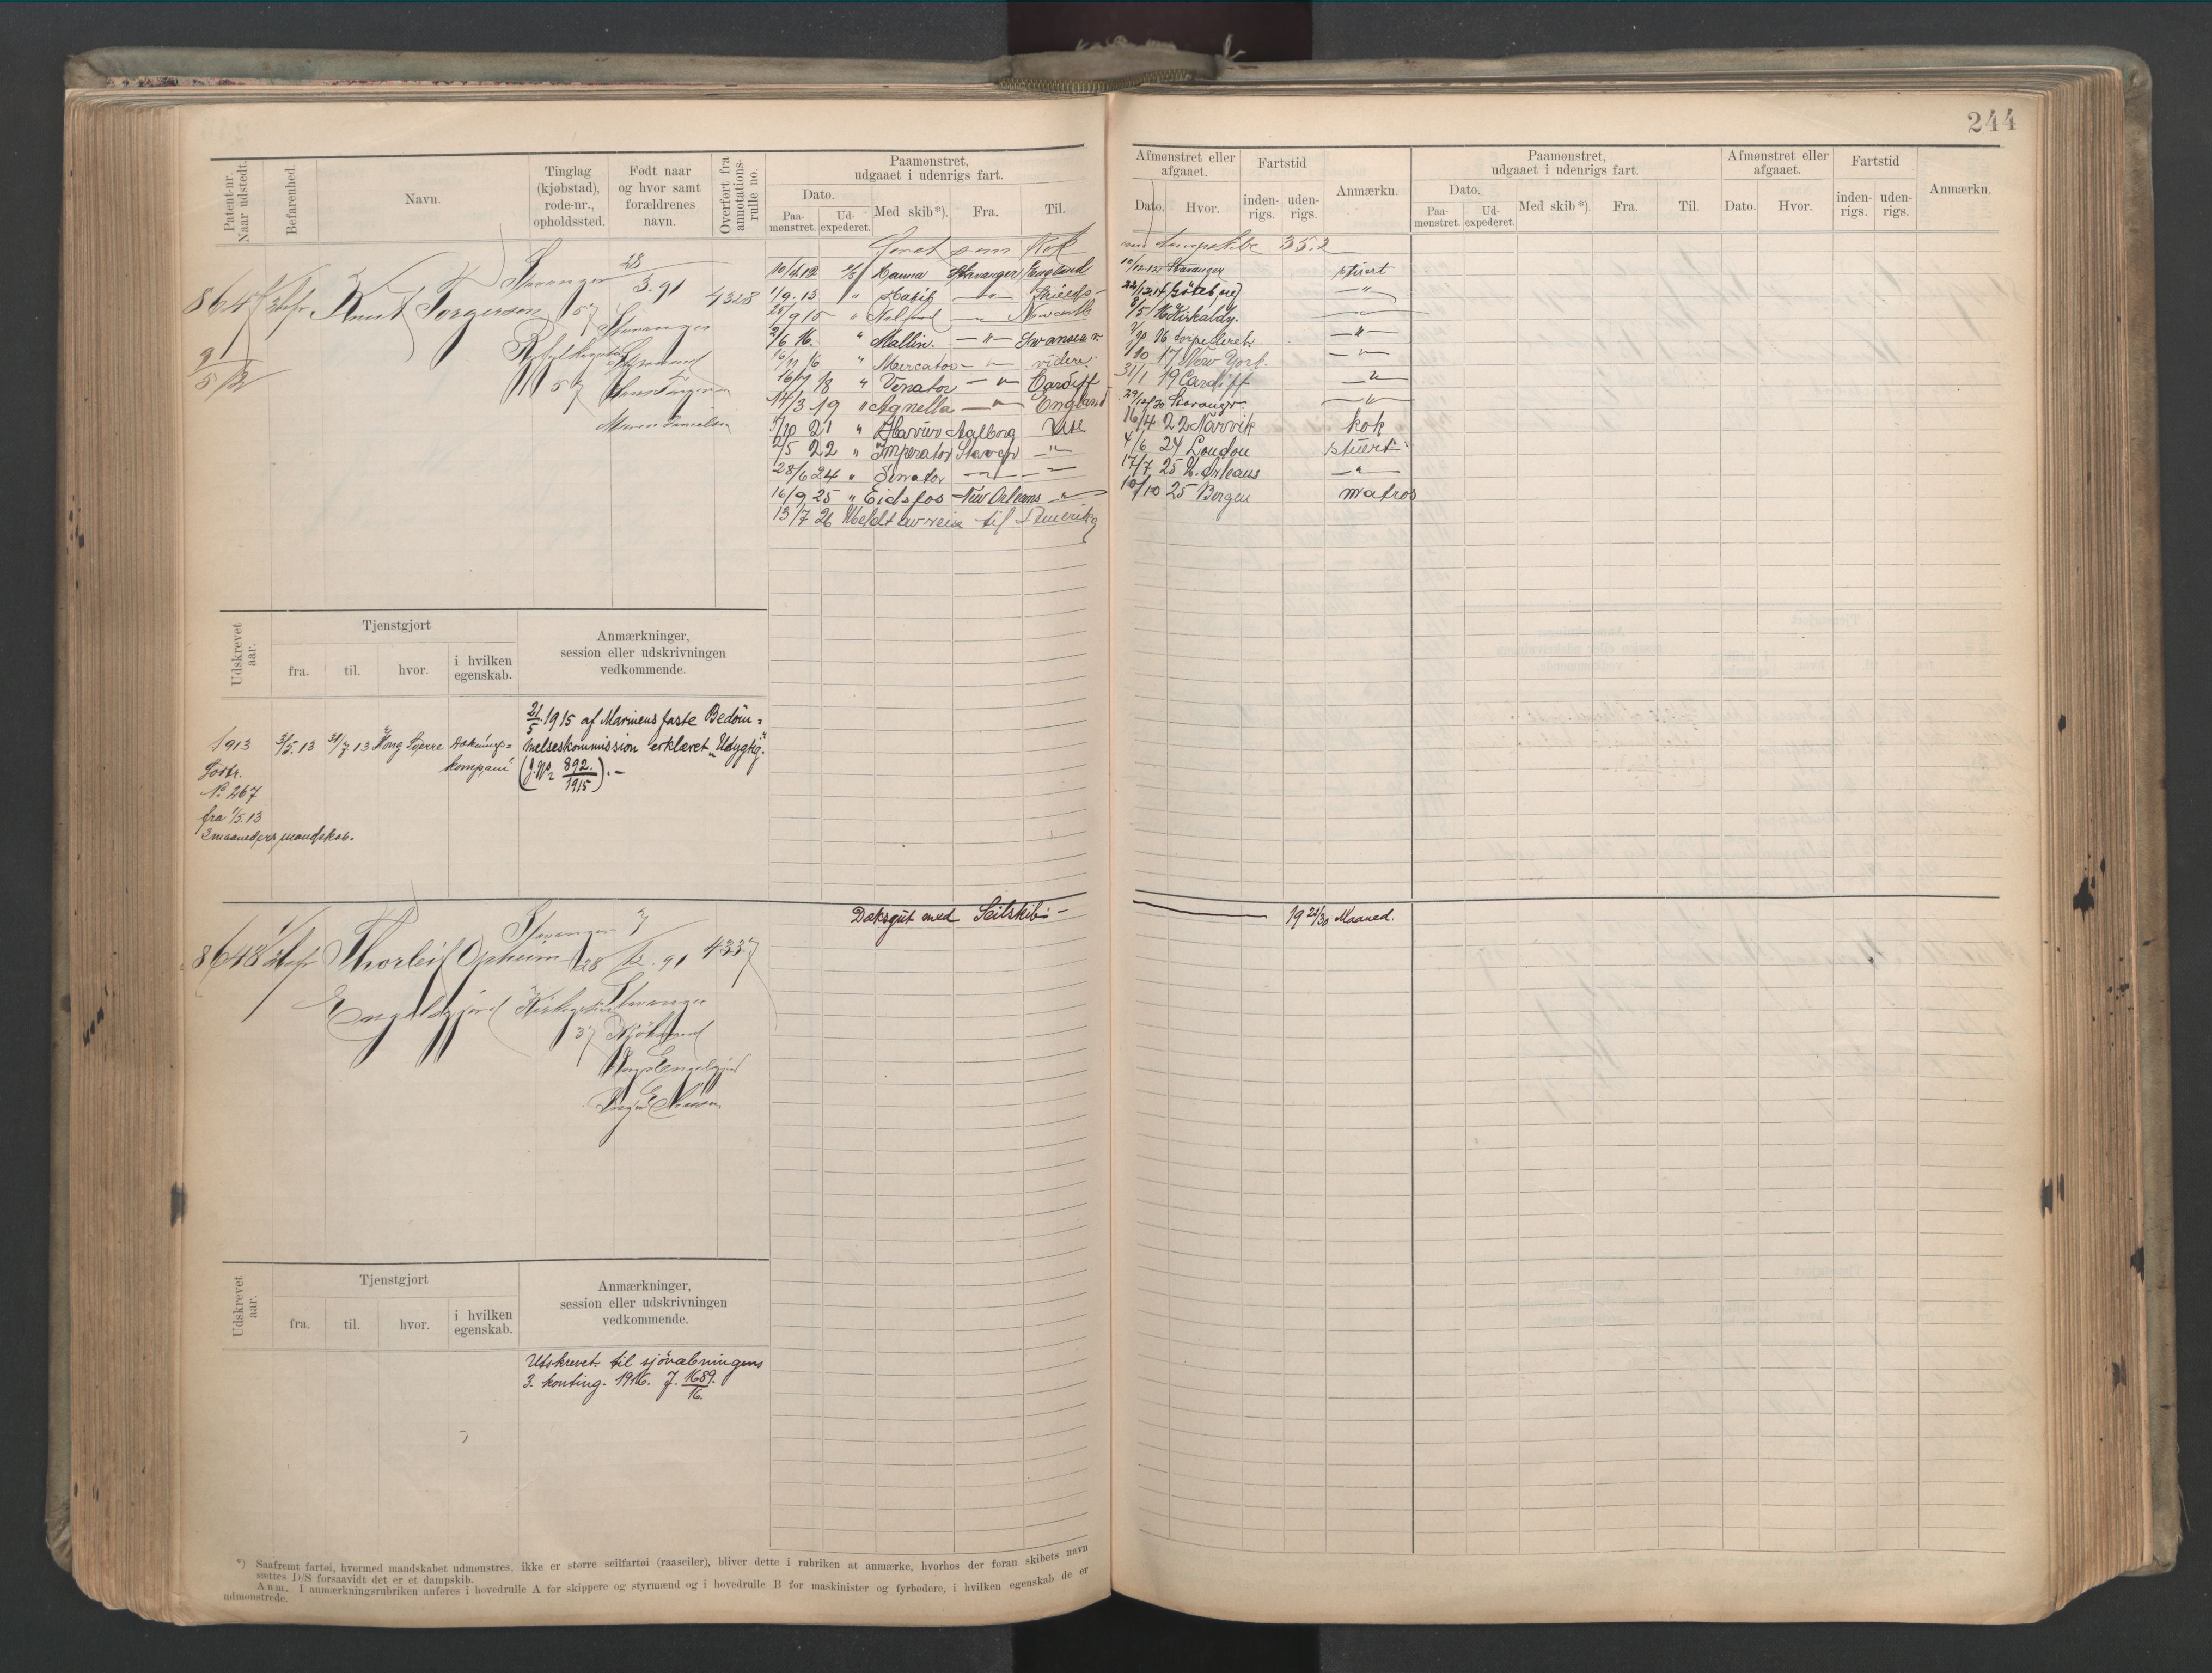 244
Patent-nr.
Naar udstedt.
Befarenhed.
Navn.
Tinglag
(kjøbstad),
rode-nr.,
opholdssted.
Født naar
og hvor samt
forældrenes
navn.
Overført fra
annotations-
rulle no.
Paamønstret,
udgaaet i udenrigs fart.
Dato.
Paa-
mønstret.
Ud-
expederet.
Med skib*).
Fra.
Til.
Afmønstret eller
afgaaet.
Dato.
Hvor.
Fartstid
inden-
rigs.
uden-
rigs.
Anmærkn.
Paamønstret,
udgaaet i udenrigs fart.
Dato.
Paa-
mønstret.
Ud-
expederet.
Med skib*).
Fra.
Til.
Afmønstret eller
afgaaet.
Dato.
Hvor.
Fartstid
inden-
rigs.
uden-
rigs.
Anmærkn.
faret som Kok med dampskibe 35.2
8647 Knut Torgersen Stavanger 28/3.91 4328
157 Stavanger
157
10/4.12 Hanna Stavanger England 10/12.12 Stavanger stuert
1/9.13 " Shields 22/12.14 Göteborg "
9 15 " Newcastle 8/5 16 Kirkaldy. "
2/6 16. " Mallin. " Swansea 16 torpederet. "
16/11 16 " Mercator " videre. 1/10 17 New York. "
18 " Venator " Cardiff 31/1 19 Cardiff "
14/3 19 " Agnella " England 20 Stavanger. "
5/10 21 " Aalborg 16/4 22 Narvik kok
2/5 22 " Imperator " 4/6 24 London stuert
28/6 24 " Senator " " 17/7 25 N. Orleans "
16/9 25 " Eidsfos New Orleans " 10/10 25 Bergen matros
13/7 26 Meldt avreise til Amerika
Udskrevet
aar.
Tjenstgjort
fra.
til.
hvor.
i hvilken
egenskab.
Anmærkninger,
session eller udskrivningen
vedkommende.
21/5 1915 af Marinens faste Bedöm=
melseskommission erklæret „Udygtig."
(J.No 892./1915).-
1913 3/5.13 31/7 13 Kong Sverre Dæknings=
kompani
No 267
fra 1/5.13
3 maaneders mandskab.
8648 Thorleif Opheim Stavanger 7/12.91 4337
Engelsgjerd 28 Stavanger
37
Dæksgut med Seilskib:- 19 22/30 Maaned.
Udskrevet
aar.
Tjenstgjort
fra.
til.
hvor.
i hvilken
egenskab.
Anmærkninger,
session eller udskrivningen
vedkommende.
Utskrevet til sjövæbningens
3. konting. 1916. J. 1689./16.
*) Saafremt fartøi, hvormed mandskabet udmønstres, ikke er større seilfartøi (raaseiler), bliver dette i rubriken at anmærke, hvorhos der foran skibets navn
sættes D/S forsaavidt det er et dampskib.
Anm. I anmærkningsrubriken anføres i hovedrulle A for skippere og styrmænd og i hovedrulle B for maskinister og fyrbødere, i hvilken egenskab de er
udmønstrede.